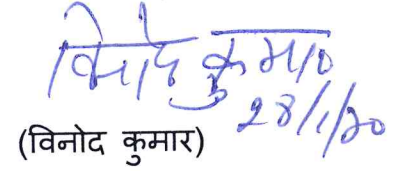 विनोद कुमार
28/1/20
(विनोद कुमार)